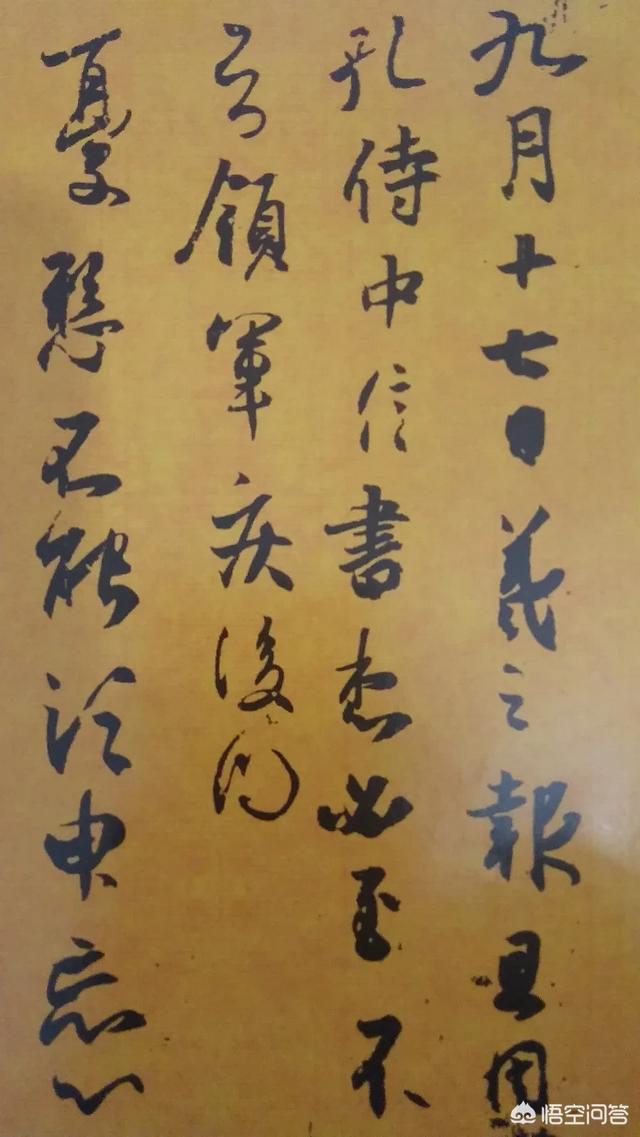 九月十七日羲之報且因
孔侍中信書想必至不
知領軍疾後問
憂懸不能須臾忘心
悟空问答